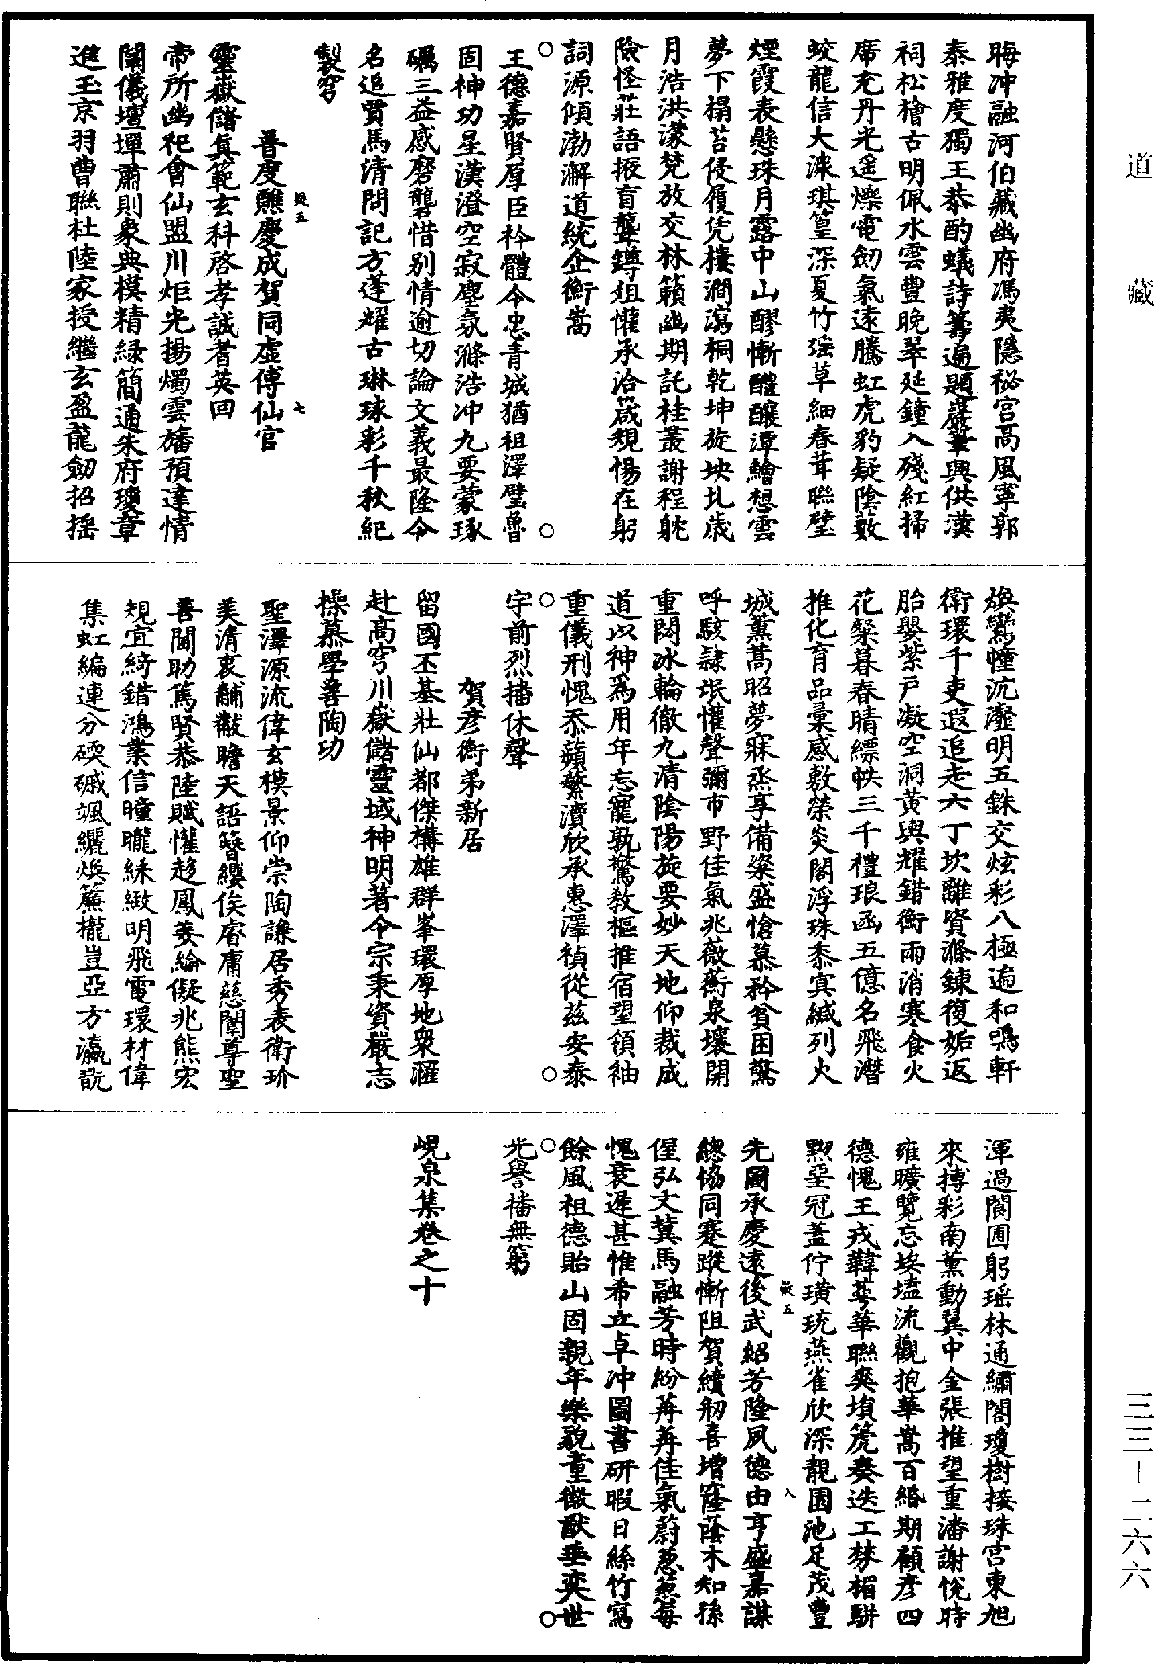 道藏
三三－二六六
晦冲融河伯藏幽府馮夷隱祕宮高風寧郭
泰雅度獨王恭酌蟻詩籌遍題麟筆興供漢
祠松檜古明佩水雲豊晚翠延鐘入殘紅掃
席充丹光遥爍電劒氣遠騰虹虎豹疑陰藪
蛟龍信大濛琪篁深夏竹瑶草細春茸聯璧
煙霞表懸珠月露中山醪慚醴釀潭繪想雲
夢下榻苔侵履凭棲澗瀉桐乾坤旋坱圠歲
月浩洪濛梵放交林籟幽期託桂叢謝程躭
險怪莊語掖盲聾罇俎懽承洽箴規惕在躬
詞源傾渤澥道統企衡嵩
王德嘉賢厚臣衿體今忠青城猶祖澤璧魯
固神功星漢澄空寂塵氛滌浩冲九要蒙琢
礪三益感磨礱惜别情逾切論文義最隆今
名追賈馬清問記方蓬耀古琳琭彰千秋紀
製穹
普度醮慶成賀同虚傅仙官
靈嶽儲真範玄科啓孝誠耆英回
帝所幽祀會仙盟川炬光揚燭雲旛預達情
闡儀壇墠肅則象典模精緑簡通朱府瓊章
進玉京羽曹聯杜陸家授繼玄盈龍劒招揺
煥鸞幢沆瀣明五銖交炫彩八極遍和鳴軒
衛環千吏遐追走六丁坎離資滌鍊復姤返
胎嬰紫戸凝空洞黄輿耀錯衡雨消寒食火
花粲暮春晴縹帙三千禮琅函五億名飛潛
推化育品彙感敷榮炎閣浮珠黍冥緘列火
城薰蒿昭夢寐烝享備粢盛愴慕矜貧困驚
呼駭隷氓懽聲彌市野佳氣兆薇蘅泉壤開
重閟冰輪徹九清陰陽旋要妙天地仰裁成
道以神爲用年忘寵孰驚教樞推宿望領袖
重儀刑愧忝蘋蘩瀆欣承惠澤禎從茲安泰
宇前烈播休聲
賀彦衡弟新居
留國丕基壯仙都傑構雄群峯環厚地衆滙
赴高穹川嶽儲靈域神明著令宗秉資嚴志
操慕學善陶功
聖澤源流偉玄模景仰崇陶謙居秀表衛玠
美清衷黼黻瞻天語簪纓俟睿庸慈闈尊聖
善閫助篤賢恭陸賦懽趨鳳姜綸儗兆熊宏
規宜綺錯鴻業信曈曨絺緻明飛電環材偉
集虹編連分碝磩颯纚煥簾櫳豈亞方瀛翫
渾過閬圃躬瑶林通繡閣瓊樹接珠宮東旭
來摶彩南薰動翼中金張推望重潘謝恱時
雍曠覽忘埃壒流觀抱華嵩百緡期顧彦四
德愧王戎韡萼華聯奭塤箎奏迭工棼楣駢
黝堊冠蓋佇璜珫燕雀欣深靚園池足茂豐
先國承慶遠後武紹芳隆夙德由亨盛嘉謀
總協同蹇蹤慚阻賀續剏喜增窿蔭木知孫
偓弘文冀馬融芳時紛苒苒佳氣蔚葱葱每
愧衰遲甚惟希立卓冲圖書研暇日絲竹寫
餘風祖德貽山固親年樂貌童微猷垂奕世
光譽播無窮
峴泉集卷之十